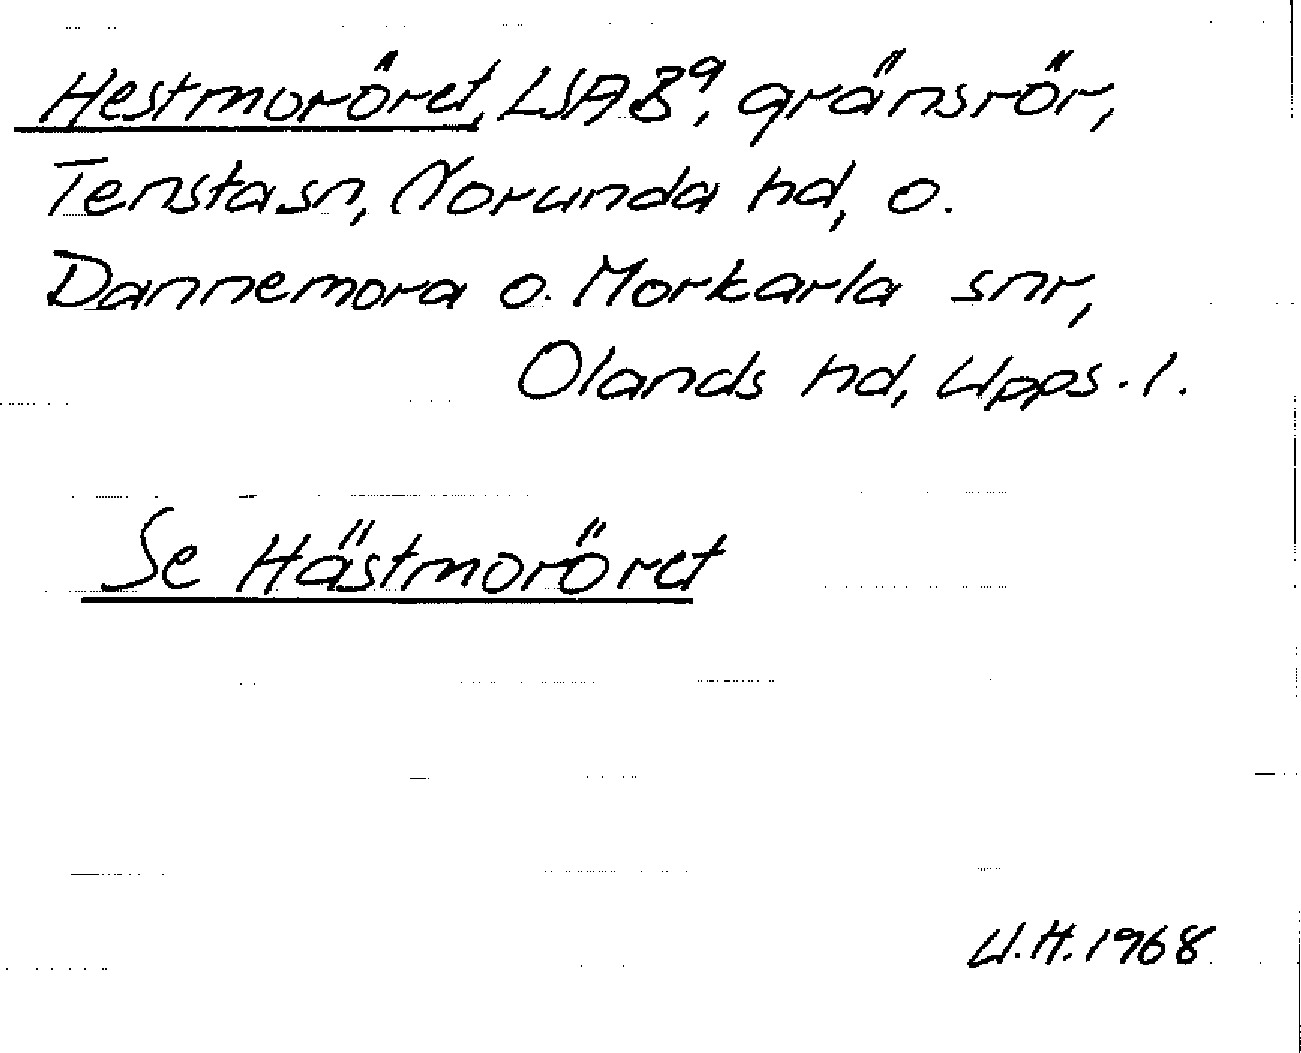 Hestmoröret, LSA B⁹, gränsrör,
Tensta sn, Norunda hd, o.
Dannemora o. Morkarla snr,
Olands hd, Upps. l.
Se Hästmoröret
U.H. 1968